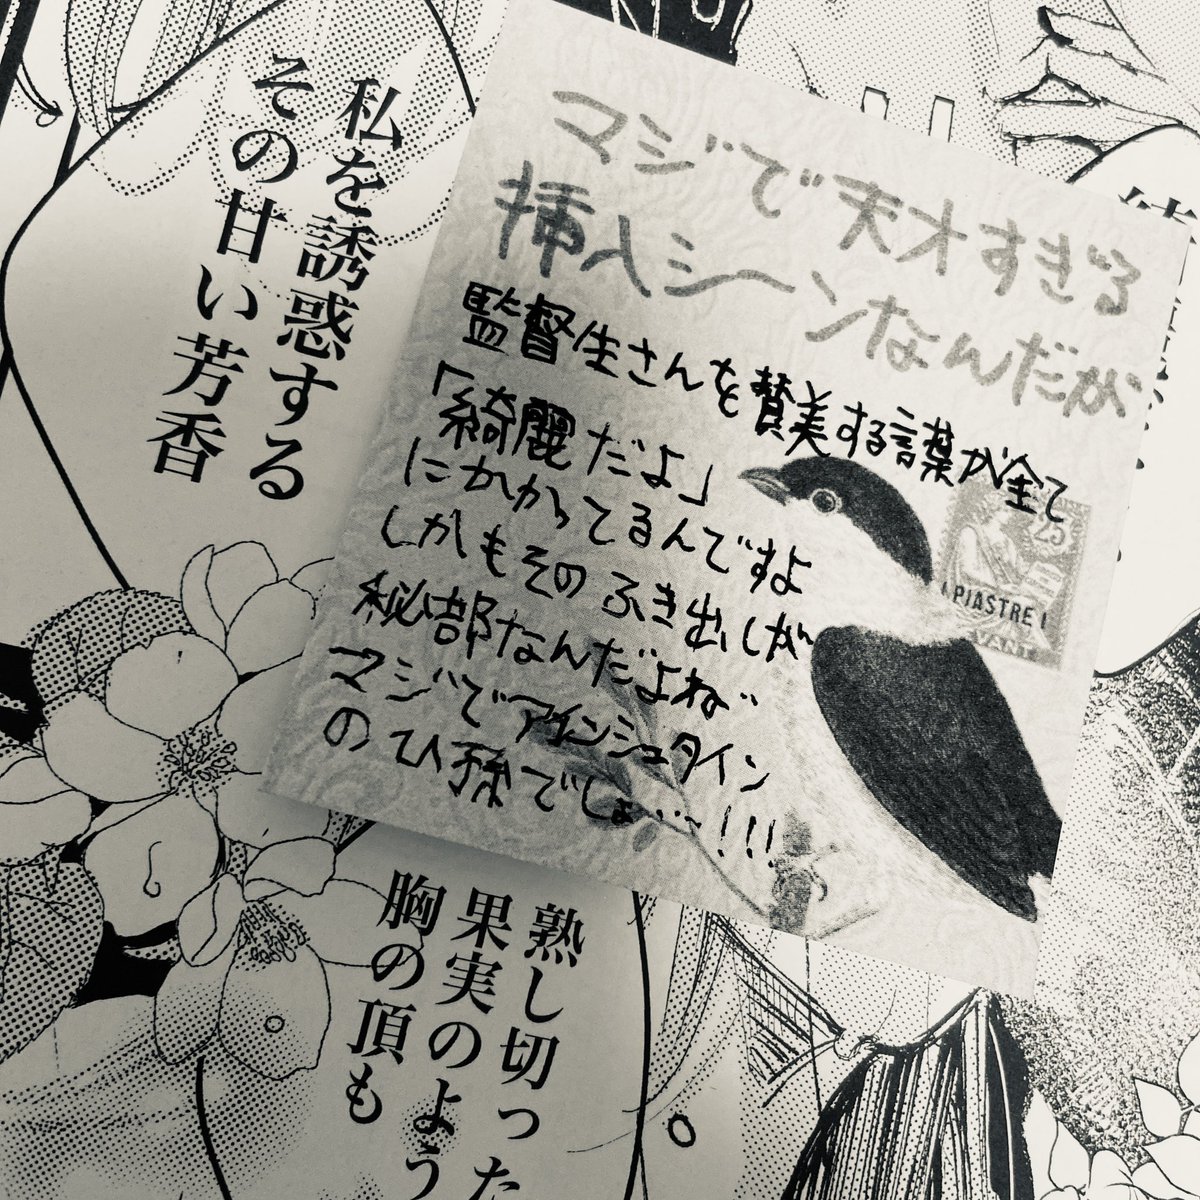 私を誘惑する
その甘い芳香
マジで天才すぎる
挿入シーンなんだが
監督生さんを賛美する言葉が全て
「綺麗だよ」
にかかってるんですよ
しかもそのふき出しが
秘部なんだよね…
マジでアインシュタイン
のひ孫でしょ…!!!
25
1 PIASTRE 1
熟し切った
果実のよう
胸の頂も